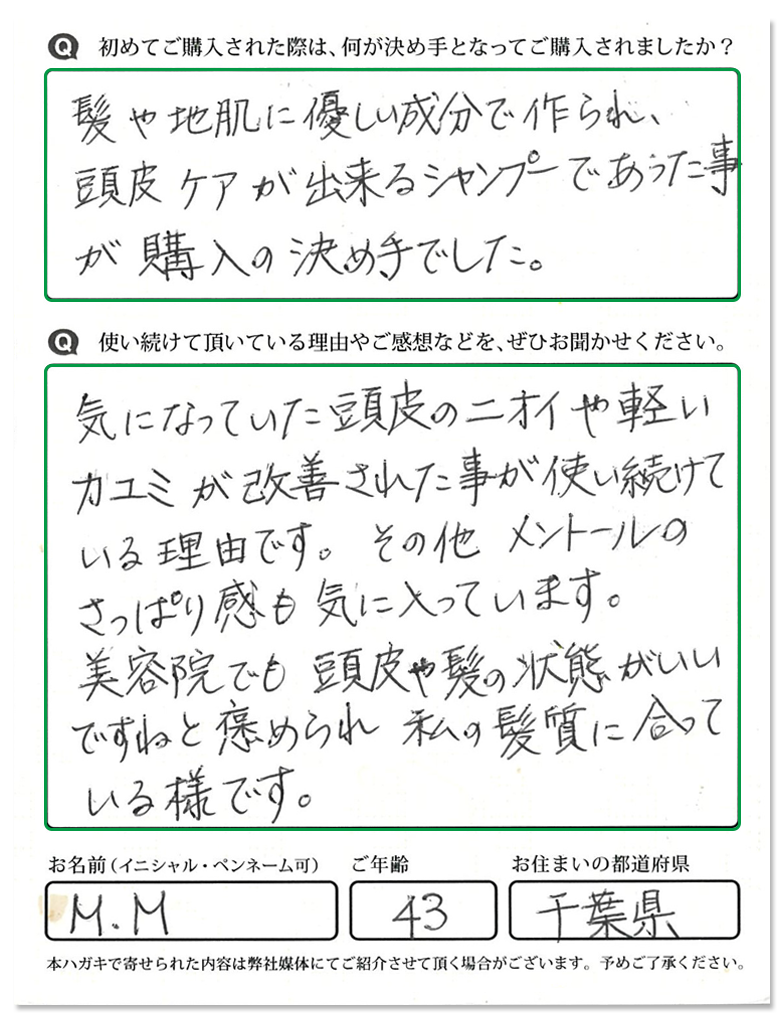 Q 初めてご購入された際は、何が決め手となってご購入されましたか？
髪や地肌に優しい成分で作られ、
頭皮ケアが出来るシャンプーであった事
が購入の決め手でした。
Q 使い続けて頂いている理由やご感想などを、ぜひお聞かせください。
気になっていた頭皮のニオイや軽い
カユミが改善された事が使い続けて
いる理由です。その他メントールの
さっぱり感も気に入っています。
美容院でも頭皮や髪の状態がいい
ですねと褒められ私の髪質に合って
いる様です。
お名前（イニシャル・ペンネーム可） ご年齢 お住まいの都道府県
M.M 43 千葉県
本ハガキで寄せられた内容は弊社媒体にてご紹介させて頂く場合がございます。予めご了承ください。